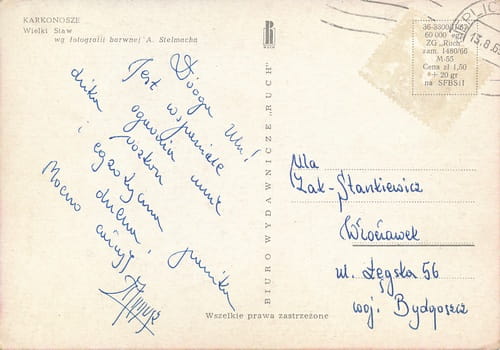 KARKONOSZE
Wielki Staw
wg fotografii barwnej A. Stelmacha
Droga Ulu!
Jest wspaniale
ogarnia mnie
dzika rozkosz
i egzotyczna
duchu!
Mocno całuję
BIURO WYDAWNICZE „RUCH"
Wszelkie prawa zastrzeżone
36-3300/1/65
60 000 egz.
ZG „Ruch"
zam. 1480/66
M-55
Cena zł 1,50
+ 20 gr
na SFBSiI
CIEPLIC
13.8.6
Ula
Żak-Stankiewicz
Włocławek
ul. Łęgska 56
woj. Bydgoszcz